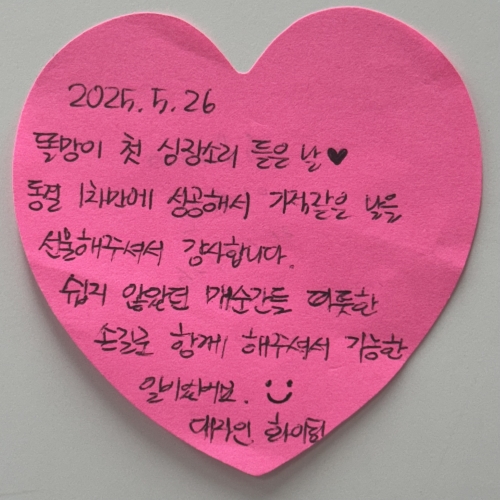 2025. 5. 26
똘망이 첫 심장소리 듣은 날♥
동결 1차만에 성공해서 기적같은 날을
선물해주셔서 감사합니다.
쉽지 않았던 매순간들 따뜻한
손길로 함께 해주셔서 가능한
일이였어요. :)
대자인 화이팅